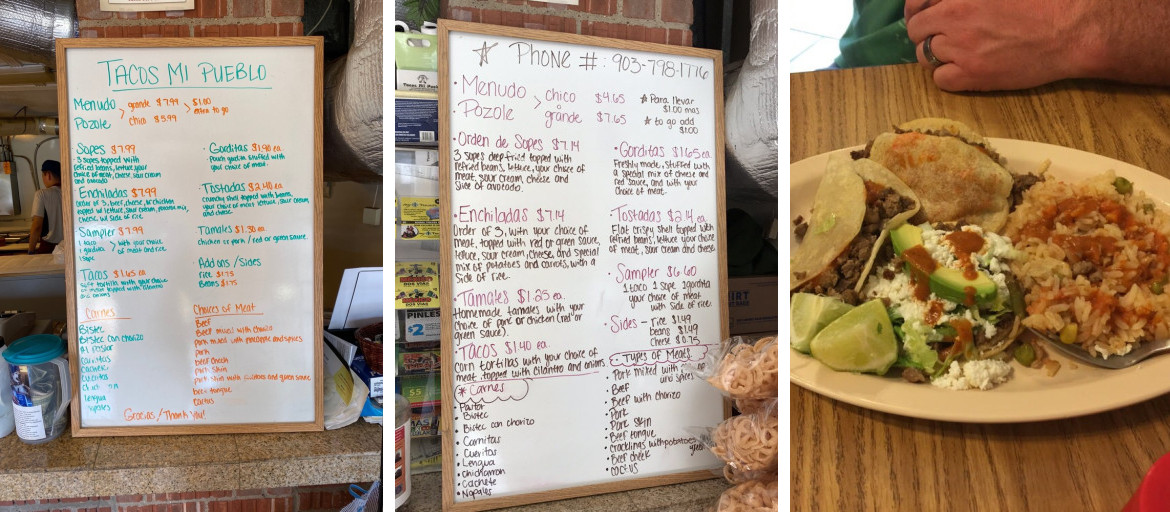 TACOS MI PUEBLO
Menudo
Pozole
grande $7.99
chico $5.99
$1.00
extra to go
Sopes $7.99
3 sopes topped with
refried beans, lettuce, your
choice of meat, cheese, sour cream
and avocado
Gorditas $1.90 ea.
stuffed with
your choice of meat
Enchiladas $7.99
order of 3, beef, cheese, or chicken
topped w/ lettuce, sour cream, potatoe mix,
cheese w/ side of rice
Tostadas $2.40 ea.
crunchy shell topped with beans,
your choice of meat, lettuce, sour cream,
and cheese
Sampler $7.99
1 taco
1 gordita
1 sope
with your choice
of meat and rice
Tamales $1.50 ea
chicken or pork / red or green sauce
Tacos $1.65 ea
soft tortilla with your choice
of meat topped with cilantro
and onions
Add ons / Sides
rice $1.75
Beans $1.75
Carnes
Bistec
Bistec con chorizo
Al Pastor
Carnitas
Cachete
Cueritos
Lengua
Nopales
Choices of Meat
Beef
Beef mixed with chorizo
Pork mixed with pineapple and spices
Pork
Beef cheek
Pork skin
Pork skin with and green sauce
beef tongue
cactus
Gracias / Thank You!
Phone #: 903-798-1776
Menudo
Pozole
chico $4.65
o
grande $7.65
* Para llevar
$1.00 mas
* to go add
$1.00
Orden de Sopes $7.14
3 sopes deep fried topped with
refried beans, lettuce, your choice of
meat, sour cream, cheese and
slice of avocado.
Gorditas $1.65 ea.
Freshly made, stuffed with
a special mix of cheese and
red sauce, and with your
choice of meat.
Enchiladas $7.14
Order of 3, with your choice of
meat, topped with red or green sauce,
lettuce, sour cream, cheese, and special
mix of potatoes and carrots, with a
side of rice.
Tostadas $2.14 ea.
Flat crispy shell topped with
refried beans, lettuce your choice
of meat, sour cream and cheese
Sampler $6.60
1 taco 1 sope 1 gordita
your choice of meat
with side of rice.
Tamales $1.25 ea.
Homemade tamales with your
choice of pork or chicken (red or
green sauce)
Sides - rice $1.49
beans $1.49
cheese $0.75
Tacos $1.40 ea.
corn tortillas with your choice of
meat topped with cilantro and onions
* Carnes
Pastor
Bistec
Bistec con chorizo
Carnitas
Cueritos
Lengua
chicharron
Cachete
Nopales
Types of Meat
Pork mixed with
and spices
Beef
Beef with chorizo
Pork
Pork skin
Beef tongue
cracklings with potatoes
green
Beef cheek
cactus
PINLES
$2
$5